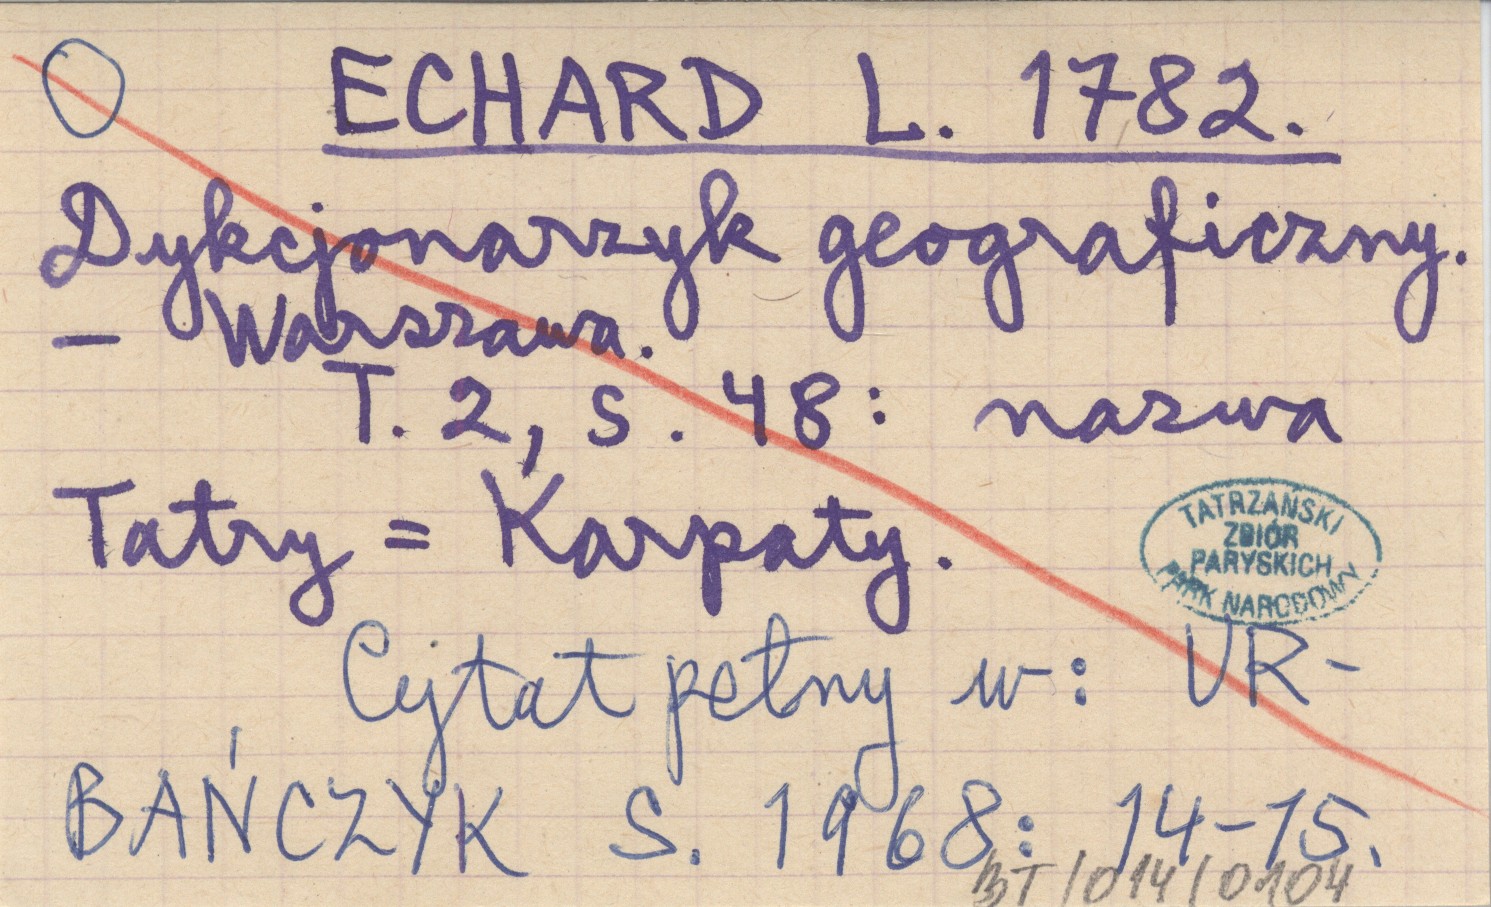 ECHARD L. 1782.
Dykcjonarzyk geograficzny.
– Warszawa.
T. 2, s. 48: nazwa
Tatry = Karpaty.
TATRZAŃSKI
ZBIÓR
PARYSKICH
PARK NARODOWY
Cytat pełny w: UR-
BAŃCZYK S. 1968: 14-15.
BT/014/0104